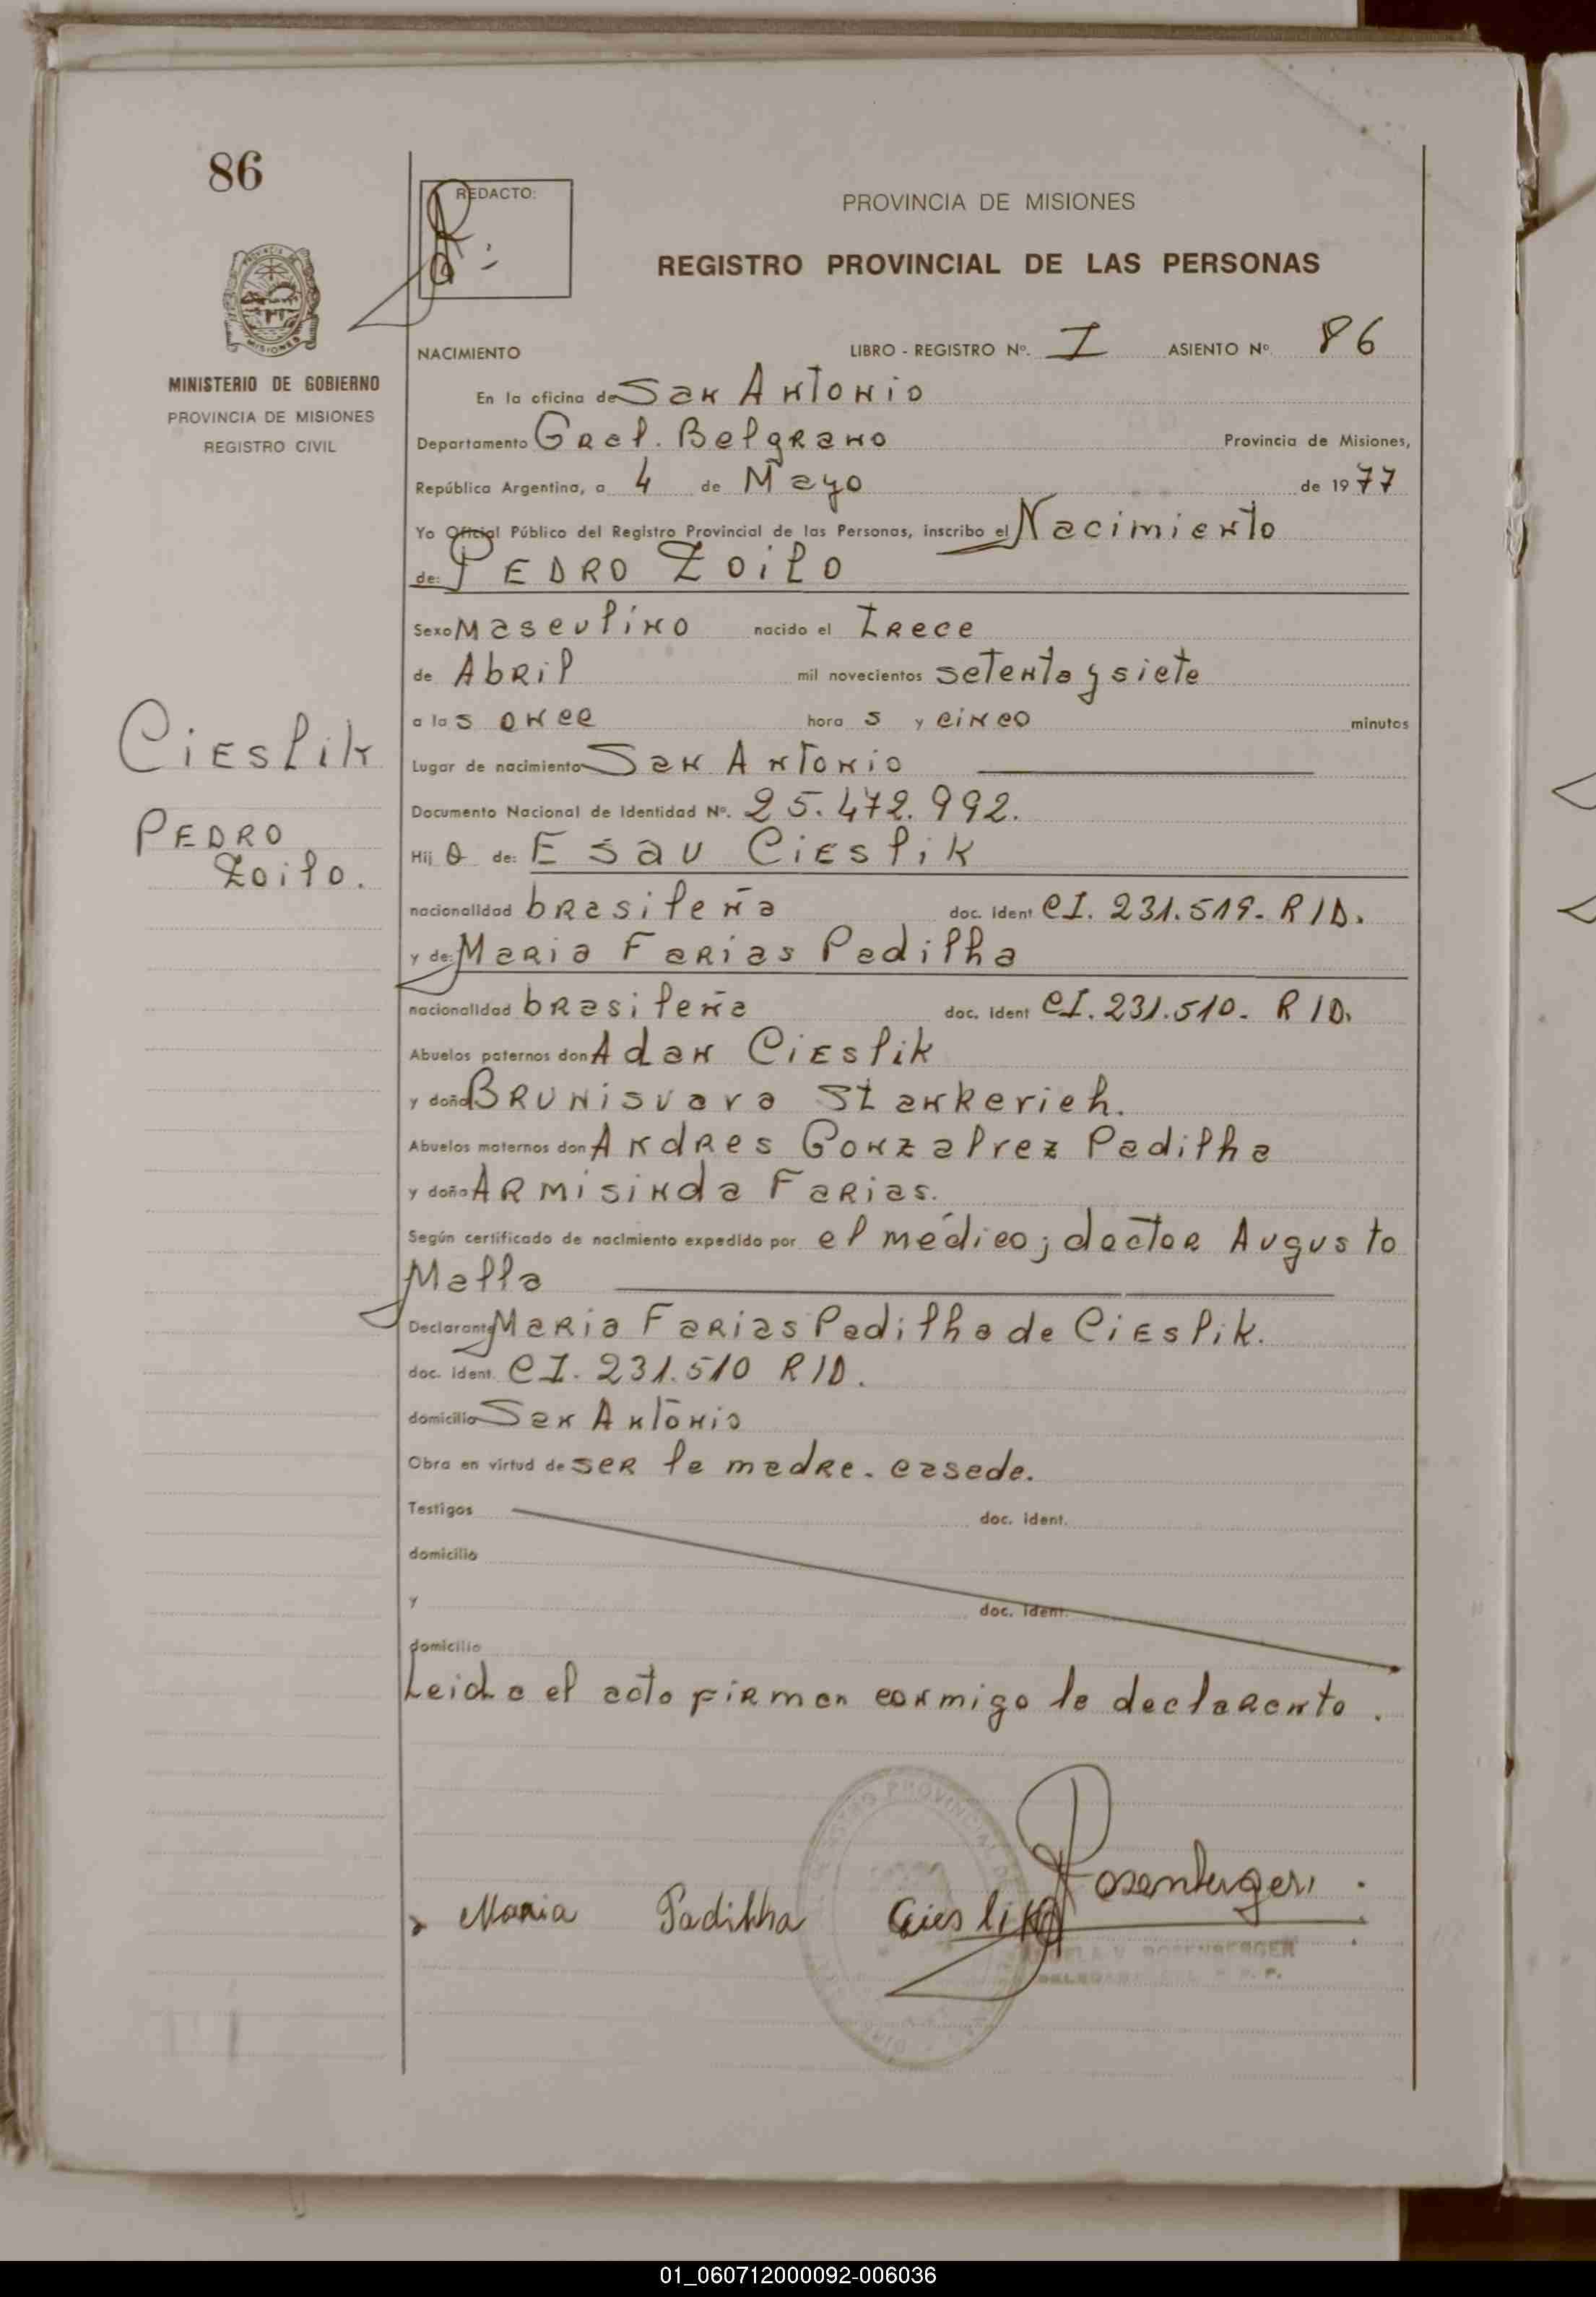 86
REDACTO:
PROVINCIA DE MISIONES
REGISTRO PROVINCIAL DE LAS PERSONAS
MINISTERIO DE GOBIERNO
PROVINCIA DE MISIONES
REGISTRO CIVIL
NACIMIENTO LIBRO - REGISTRO Nº. I ASIENTO Nº 86
En la oficina de San Antonio
Departamento Gral. Belgrano Provincia de Misiones,
República Argentina, a 4 de Mayo de 1977
Yo Oficial Público del Registro Provincial de las Personas, inscribo el Nacimiento
de: PEDRO Zoilo
Sexo Masculino nacido el Trece
de Abril mil novecientos setenta y siete
a las once horas y cinco minutos
Cieslik
PEDRO
Zoilo.
Lugar de nacimiento San Antonio
Documento Nacional de Identidad Nº. 25.472.992.
Hijo de: Esau Cieslik
nacionalidad brasileña doc. ident CI. 231.519. R/D.
y de: Maria Farias Padilha
nacionalidad brasileña doc. ident CI. 231.510. R/D.
Abuelos paternos don Adan Cieslik
y doña Brunisvava Stankerich.
Abuelos maternos don Andres Gonzalvez Padilha
y doña Armisinda Farias.
Según certificado de nacimiento expedido por el médico; doctor Augusto
Malla
Declarante Maria Farias Padilha de Cieslik.
doc. ident. CI. 231.510 R/D.
domicilio San Antonio
Obra en virtud de ser la madre. casede.
Testigos doc. ident.
domicilio
y doc. ident.
domicilio
Leida el acta firman conmigo la declarante.
Maria Padilha Cieslik
Rosenberger
V. ROSENBERGER
01_060712000092-006036